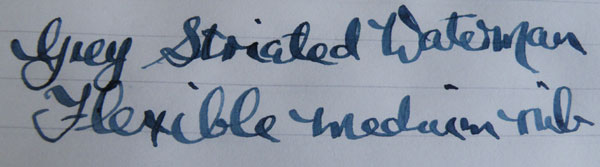 Grey Striated Waterman
Flexible medium nib